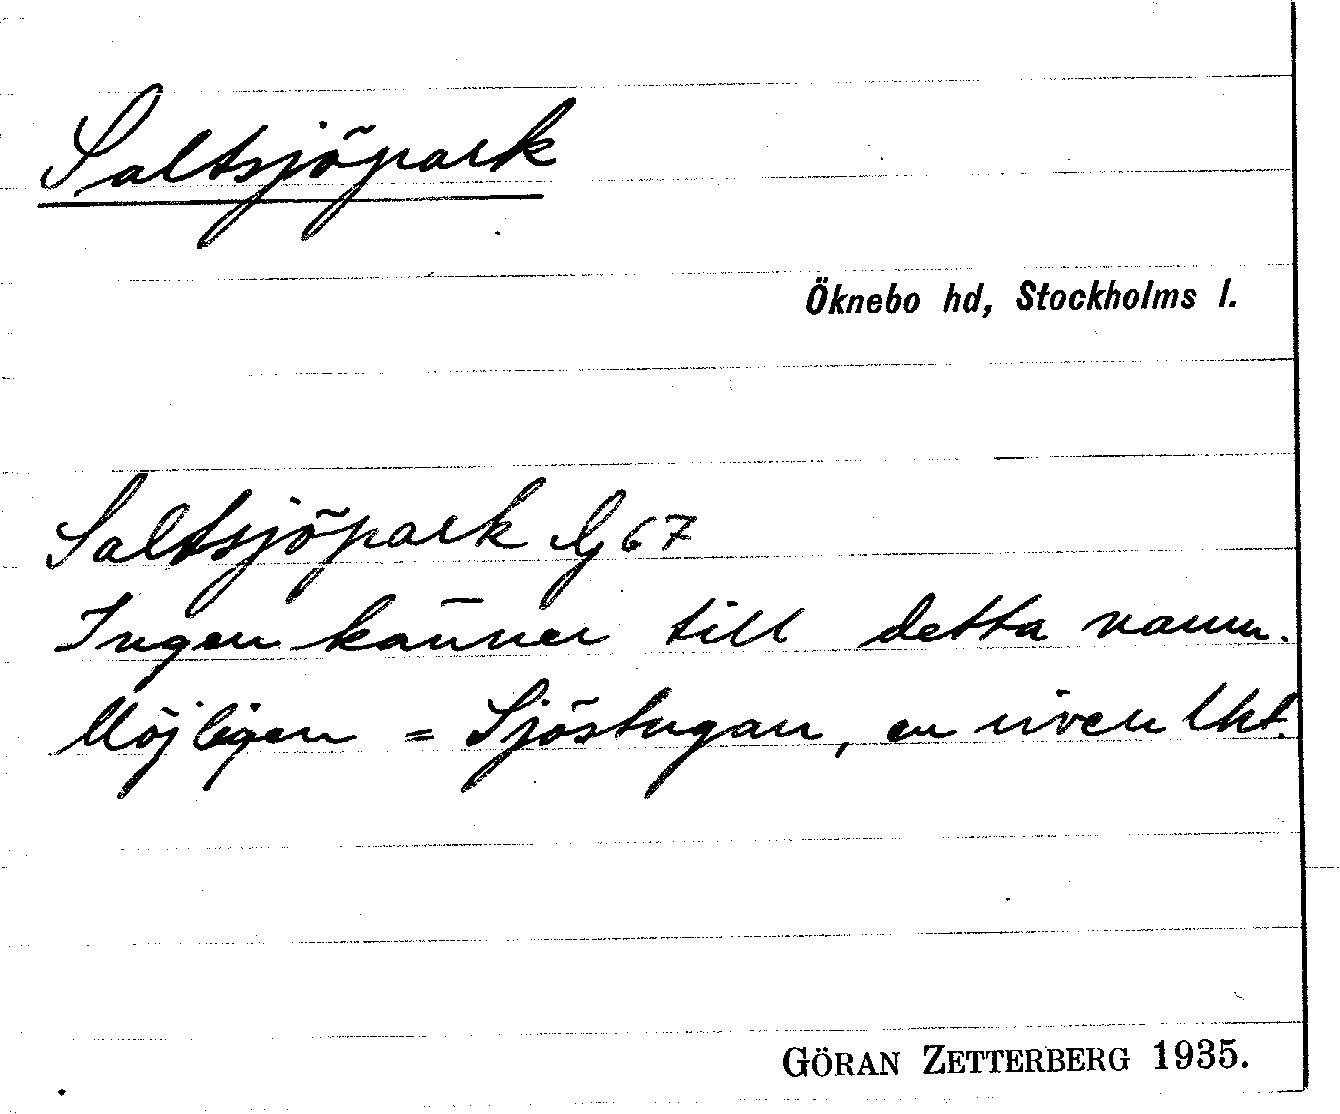 Saltsjöpark
Öknebo hd, Stockholms l.
Saltsjöpark Jj 67
Ingen känner till detta namn.
Möjligen = Sjöstugan, en riven lht.
GÖRAN ZETTERBERG 1935.